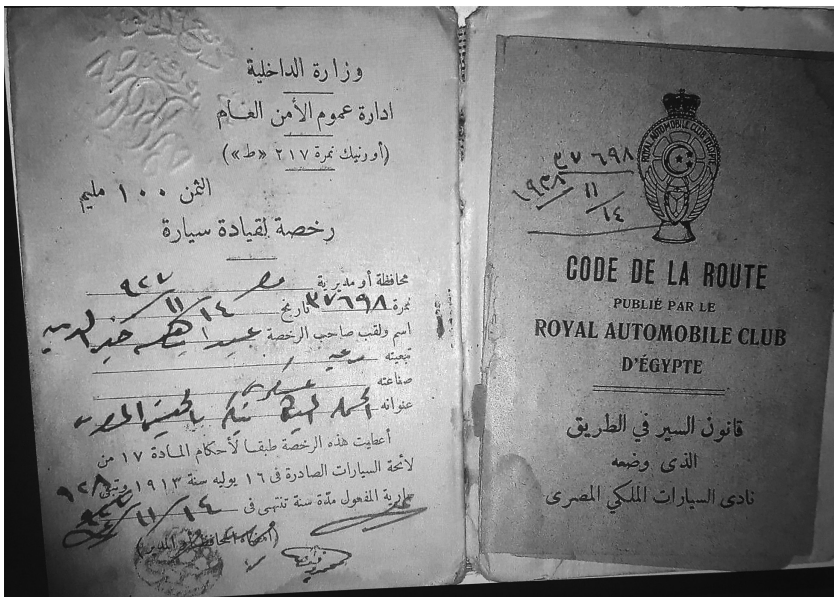 وزارة الداخلية
ادارة عموم الأمن العام
(أورنيك نمرة ٢١٧ «ط»)
الثمن ١٠٠ مليم
رخصة لقيادة سيارة
محافظة أو مديرية مصر
نمرة ٣٧٦٩٨ تاريخ ١٤/١١/٩٢٧
اسم ولقب صاحب الرخصة
تبعيته
صناعته عسكرى
عنوانه
أعطيت هذه الرخصة طبقا لأحكام المادة ١٧ من
لائحة السيارات الصادرة فى ١٦ يوليه سنة ١٩١٣ وتبقى
سارية المفعول مدة سنة تنتهى فى ١٤/١١/
(امضاء المحافظ أو المدير)
ROYAL AUTOMOBILE CLUB EGYPTE
٣٧٦٩٨
١٤/١١/١٩٣٨
CODE DE LA ROUTE
PUBLIÉ PAR LE
ROYAL AUTOMOBILE CLUB
D'ÉGYPTE
قانون السير في الطريق
الذى وضعه
نادى السيارات الملكي المصرى